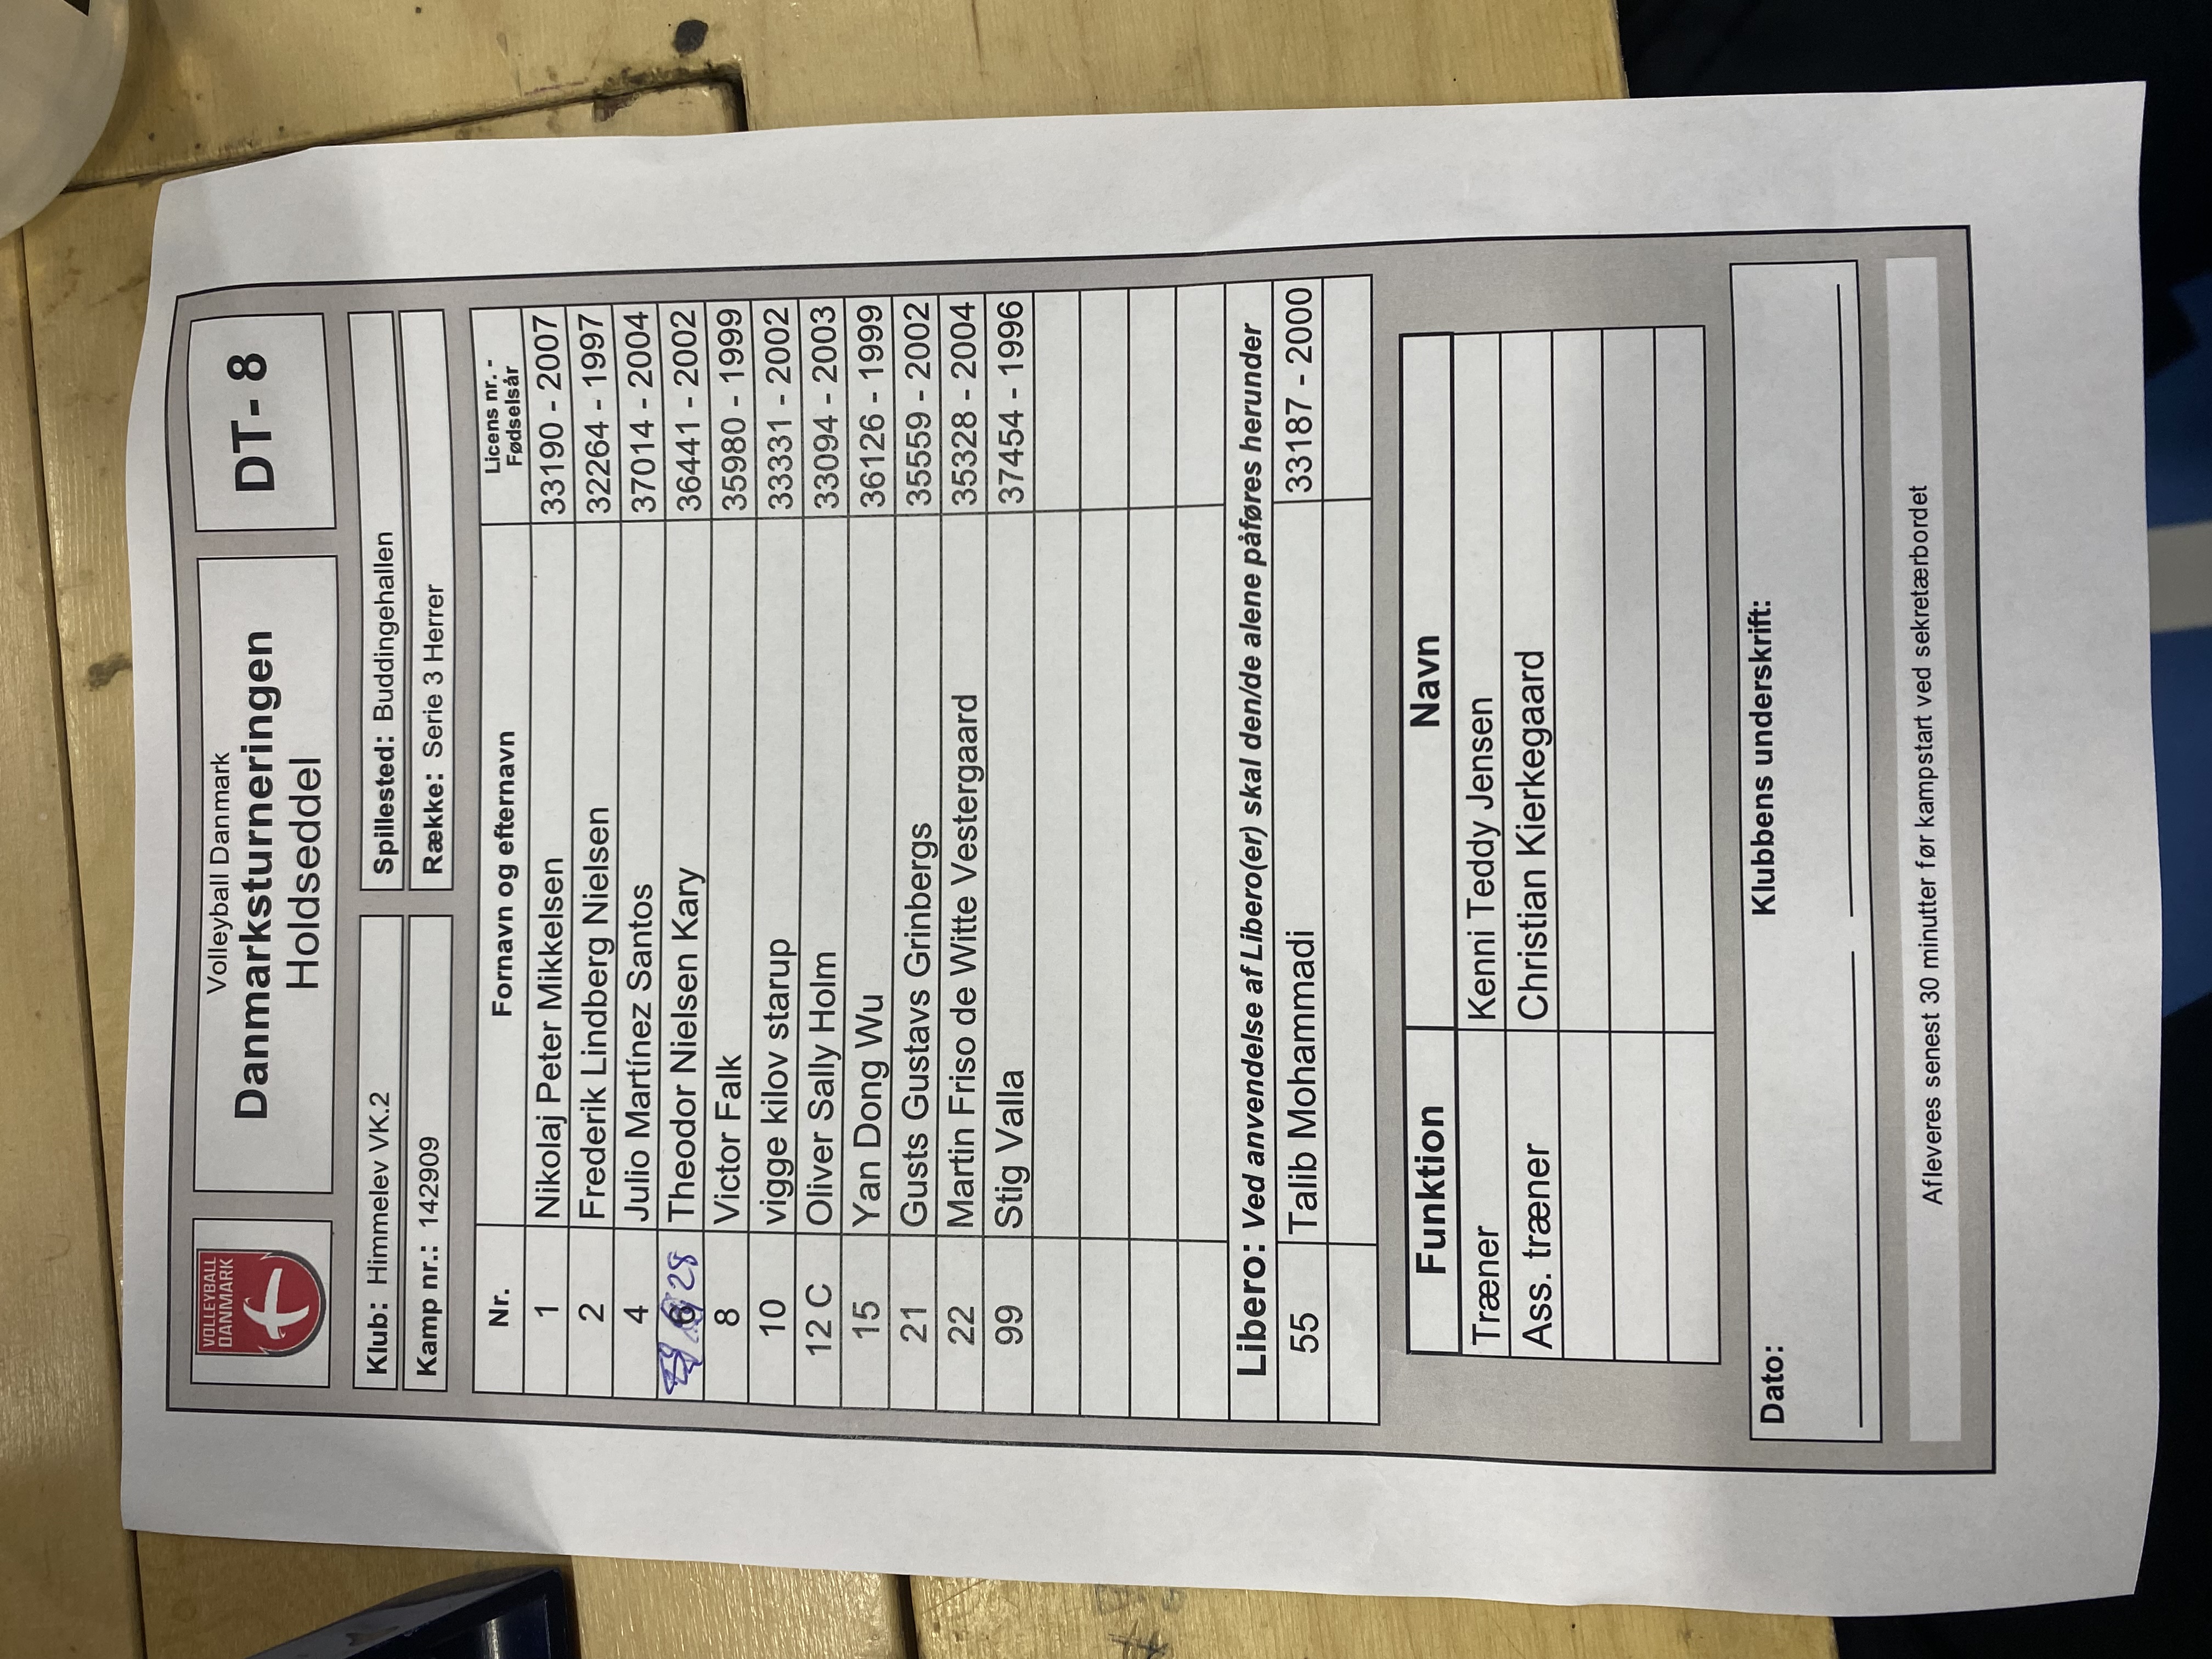 VOLLEYBALL
DANMARK
Volleyball Danmark
Danmarksturneringen
Holdseddel
DT- 8
Klub: Himmelev VK.2
Spillested: Buddingehallen
Kamp nr.: 142909
Række: Serie 3 Herrer
Nr. Fornavn og efternavn Licens nr. - Fødselsår
1 Nikolaj Peter Mikkelsen 33190 - 2007
2 Frederik Lindberg Nielsen 32264 - 1997
4 Julio Martínez Santos 37014 - 2004
28 Theodor Nielsen Kary 36441 - 2002
8 Victor Falk 35980 - 1999
10 vigge kilov starup 33331 - 2002
12 C Oliver Sally Holm 33094 - 2003
15 Yan Dong Wu 36126 - 1999
21 Gusts Gustavs Grinbergs 35559 - 2002
22 Martin Friso de Witte Vestergaard 35328 - 2004
99 Stig Valla 37454 - 1996
Libero: Ved anvendelse af Libero(er) skal den/de alene påføres herunder
55 Talib Mohammadi 33187 - 2000
Funktion Navn
Træner Kenni Teddy Jensen
Ass. træner Christian Kierkegaard
Dato: Klubbens underskrift:
Afleveres senest 30 minutter før kampstart ved sekretærbordet